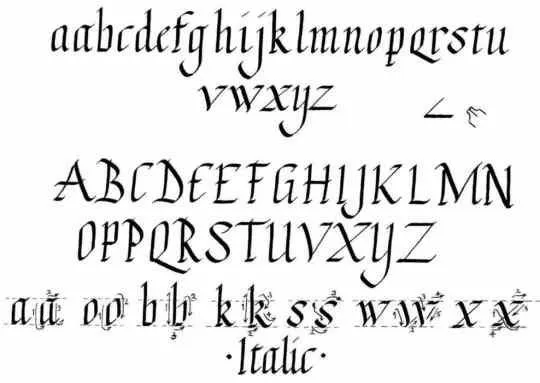 aabcdefghijklmnopqrstu
vwxyz
ABCDEEFGHIJKLMN
OPPQRSTUVXYZ
aa oo bb kk ss ww xx
·Italic·